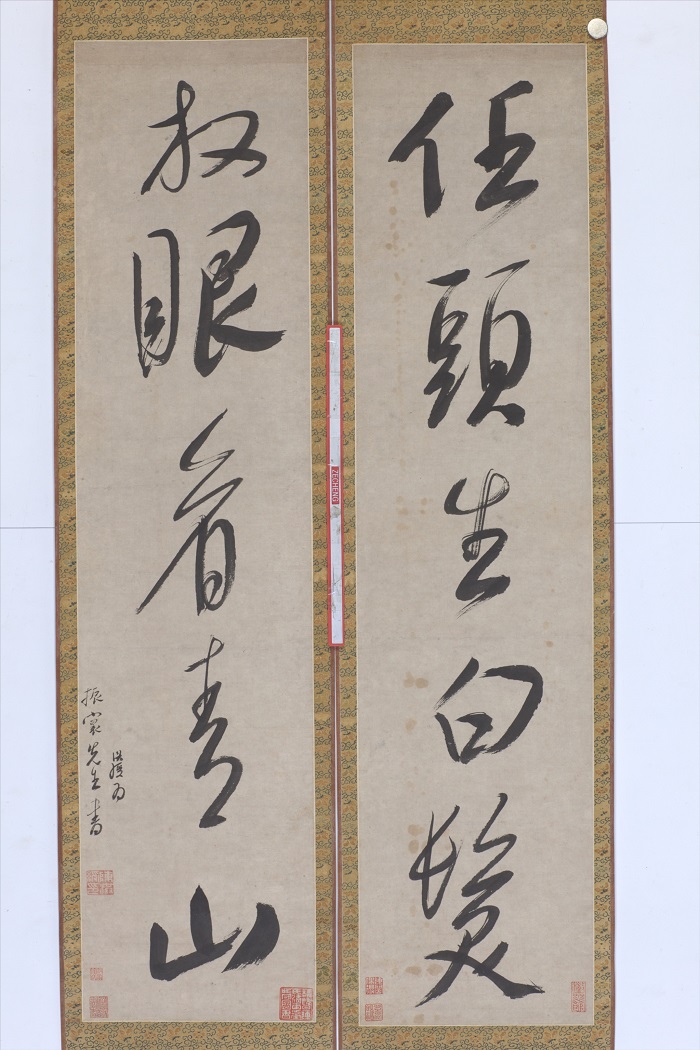 任頭生白髮
放眼看青山
為
振裳先生書
ZECHENG